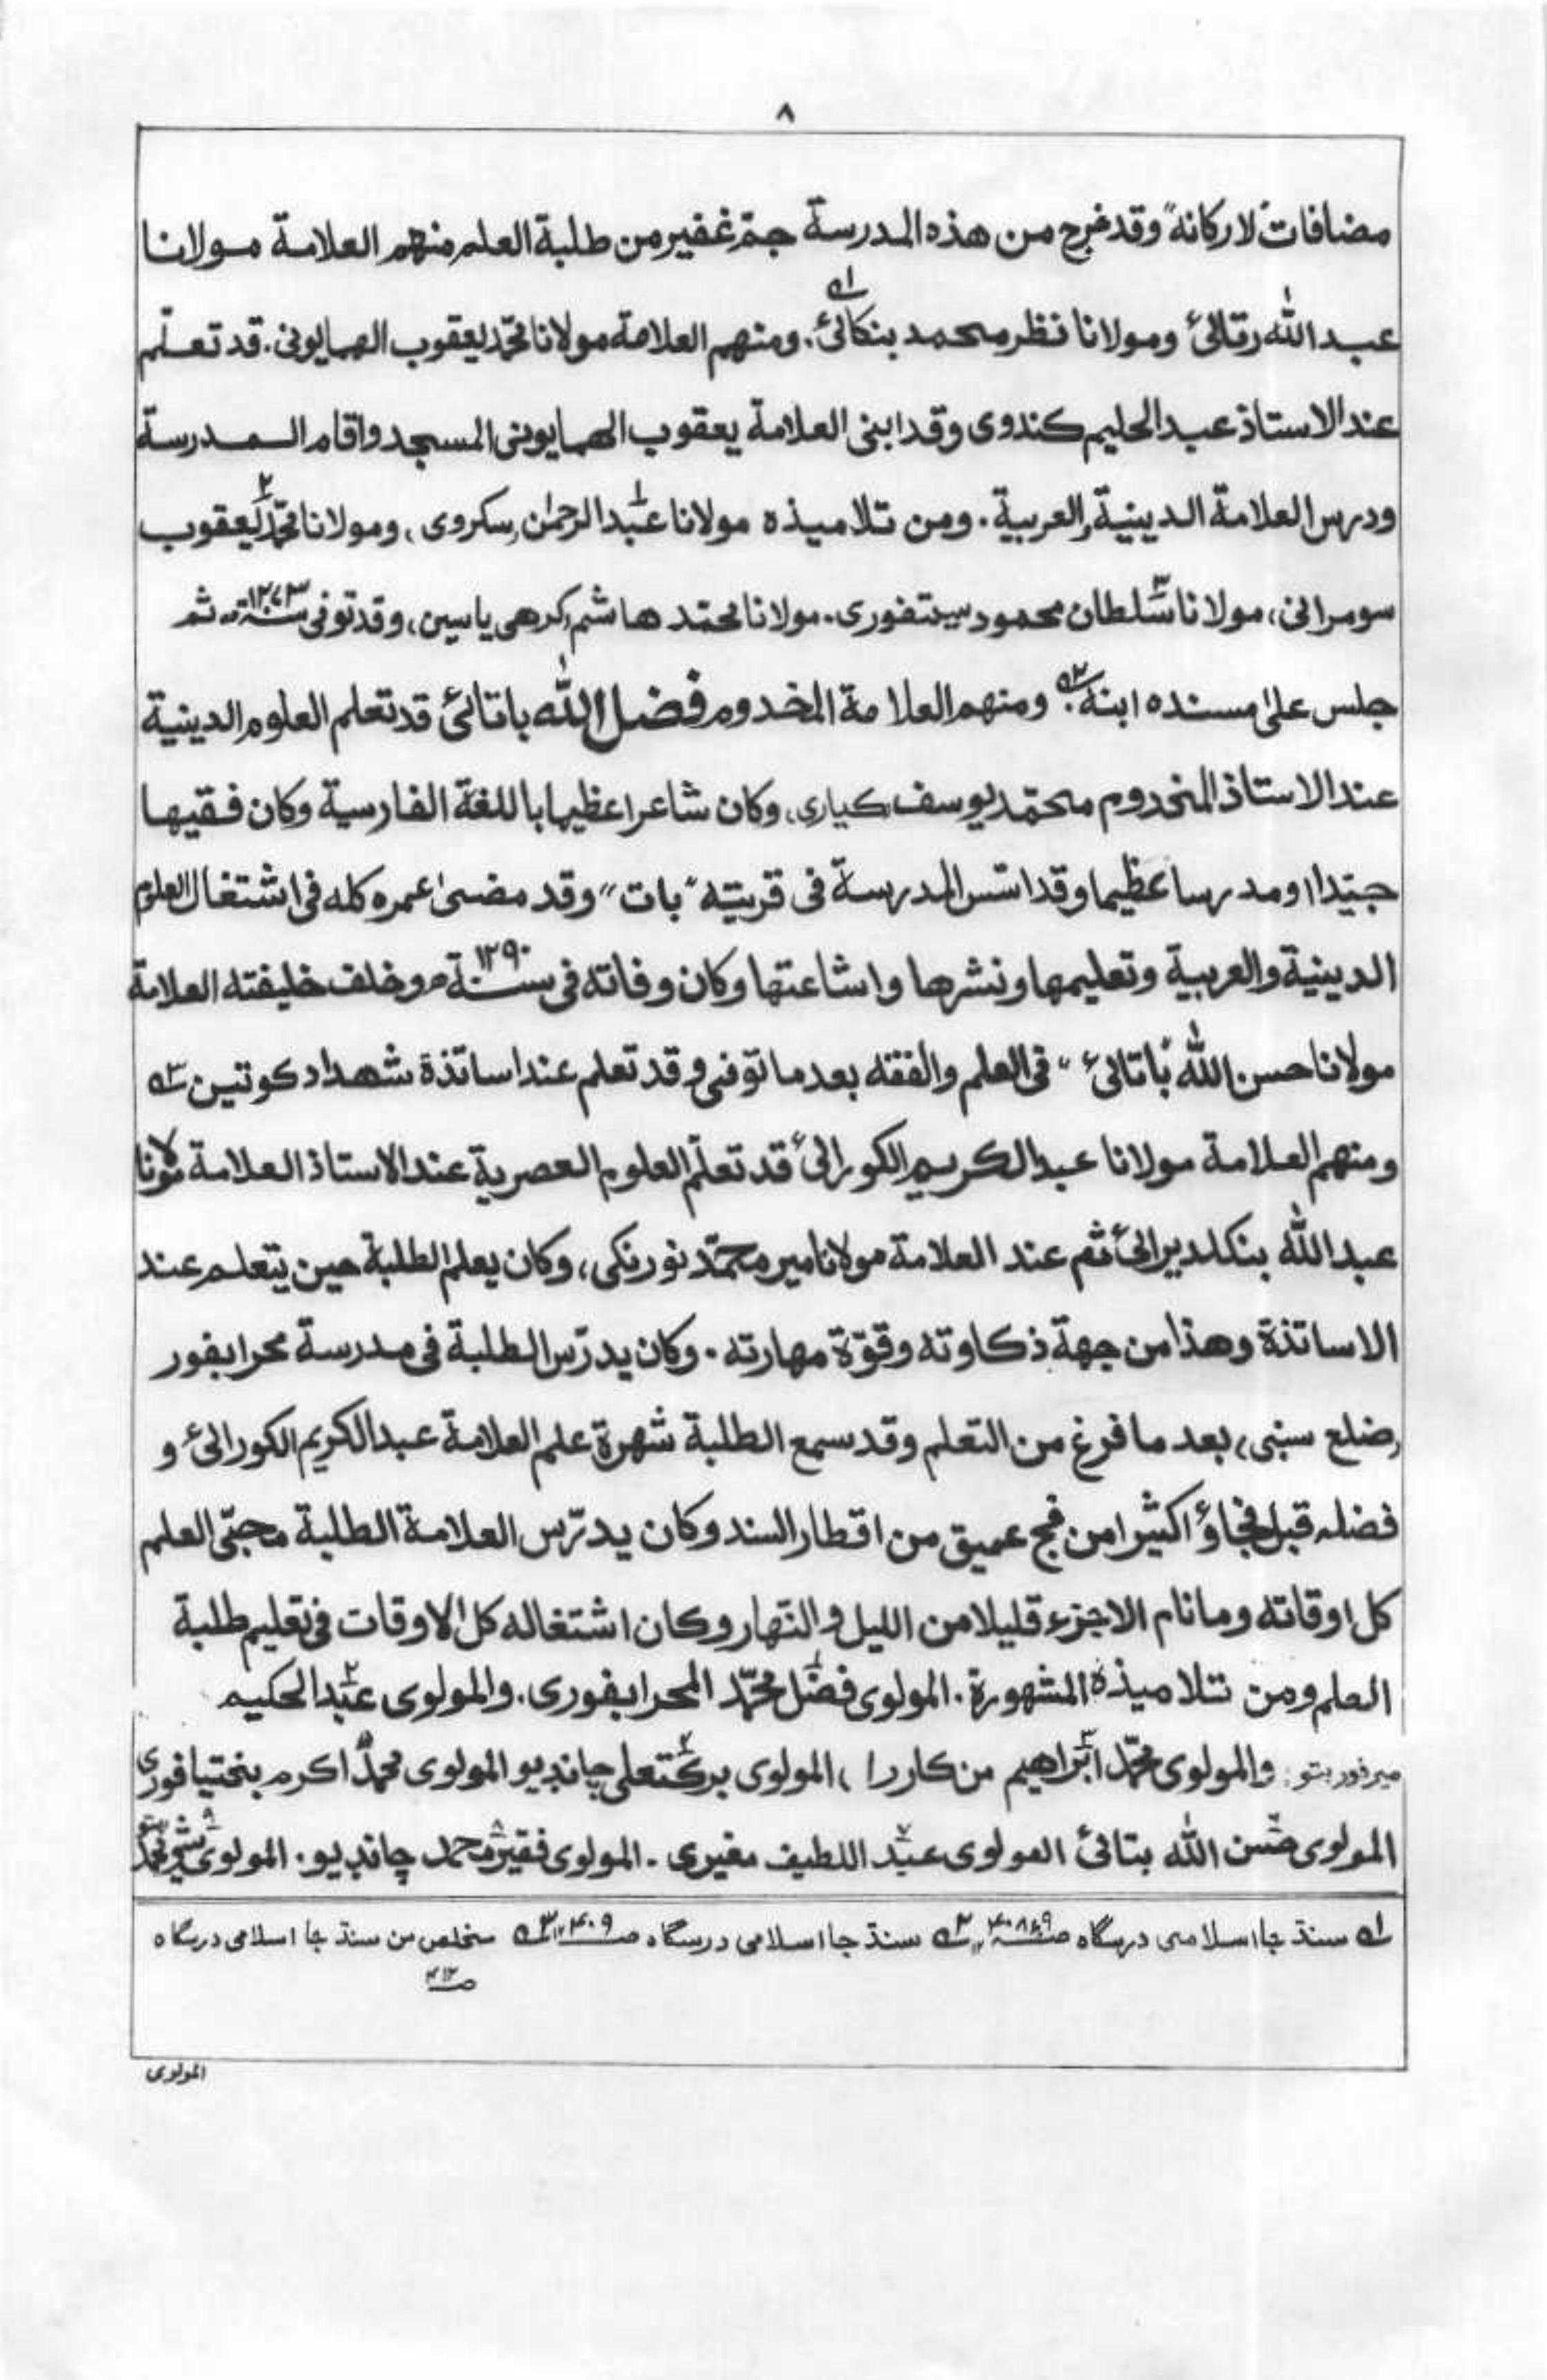 ٨
مضافات "لاركانه" وقد خرج من هذه المدرسة جمّ غفير من طلبة العلم منهم العلامة مولانا
عبد الله رتالئ ومولانا نظر محمد بنكالئ. ومنهم العلامة مولانا محمّد يعقوب الهمايونى. قد تعلّم
عند الاستاذ عبد الحليم كندوى وقد ابنى العلامة يعقوب الهمايونى المسجد واقام المدرسة
ودرس العلامة الدينية والعربية. ومن تلاميذه مولانا عبد الرحمٰن سكروى، ومولانا محمّد يعقوب
سومرانى، مولانا سلطان محمود سيتفورى. مولانا محمّد هاشم كرهى ياسين، وقد توفى سنة ١٢٧٣ ثم
جلس علىٰ مسنده ابنه. ومنهم العلامة المخدوم فضل الله باتائى قد تعلم العلوم الدينية
عند الاستاذ المخدوم محمّد يوسف كيارى، وكان شاعرا عظيما باللغة الفارسية وكان فقيها
جيّدا ومدرسا عظيما وقد اسّس المدرسة فى قريته "بات" وقد مضىٰ عمره كله فى اشتغال العلوم
الدينية والعربية وتعليمها ونشرها واشاعتها وكان وفاته فى سنة ١٢٩٠ وخلف خليفته العلامة
مولانا حسن الله "باتائئ" فى العلم والفقه بعد ما توفى وقد تعلم عند اساتذة شهداد كوتين ٣ے
ومنهم العلامة مولانا عبد الكريم الكورائئ قد تعلّم العلوم العصرية عند الاستاذ العلامة مولانا
عبد الله بنكلديرائئ ثم عند العلامة مولانا مير محمّد نورنكى، وكان يعلم الطلبة حين يتعلم عند
الاساتذة وهذا من جهة ذكاوته وقوّة مهارته. وكان يدرّس الطلبة فى مدرسة محرابفور
(ضلع سبى) بعد ما فرغ من التعلم وقد سمع الطلبة شهرة علم العلامة عبد الكريم الكورائئ و
فضله قبل فجاؤ اكثيرا من فج عميق من اقطار السند وكان يدرّس العلامة الطلبة محبّى العلم
كل اوقاته وما نام الا جزء قليلا من الليل والنّهار وكان اشتغاله كل الاوقات فى تعليم طلبة
العلم ومن تلاميذه المشهورة. المولوى فضل محمّد المحرابفورى. والمولوى عبد الحكيم
ميرفور بتو. والمولوى محمّد ابراهيم من كاررا، المولوى بركت على چانديو المولوى محمّد اكرم بختيافورى
المولوى حسن الله بتائئ المولوى عبد اللطيف مغيرى. المولوى فقير محمد چانديو. المولوى شير محمّد
١ے سنڌ جا اسلامى درسگاه صـ ٤٠٨،٤٩ ٢ے سنڌ جا اسلامى درسگاه صـ ٤٠٩ ٣ے منخلص من سنڌ جا اسلامى درسگاه
صـ ٤١٢
المولوى